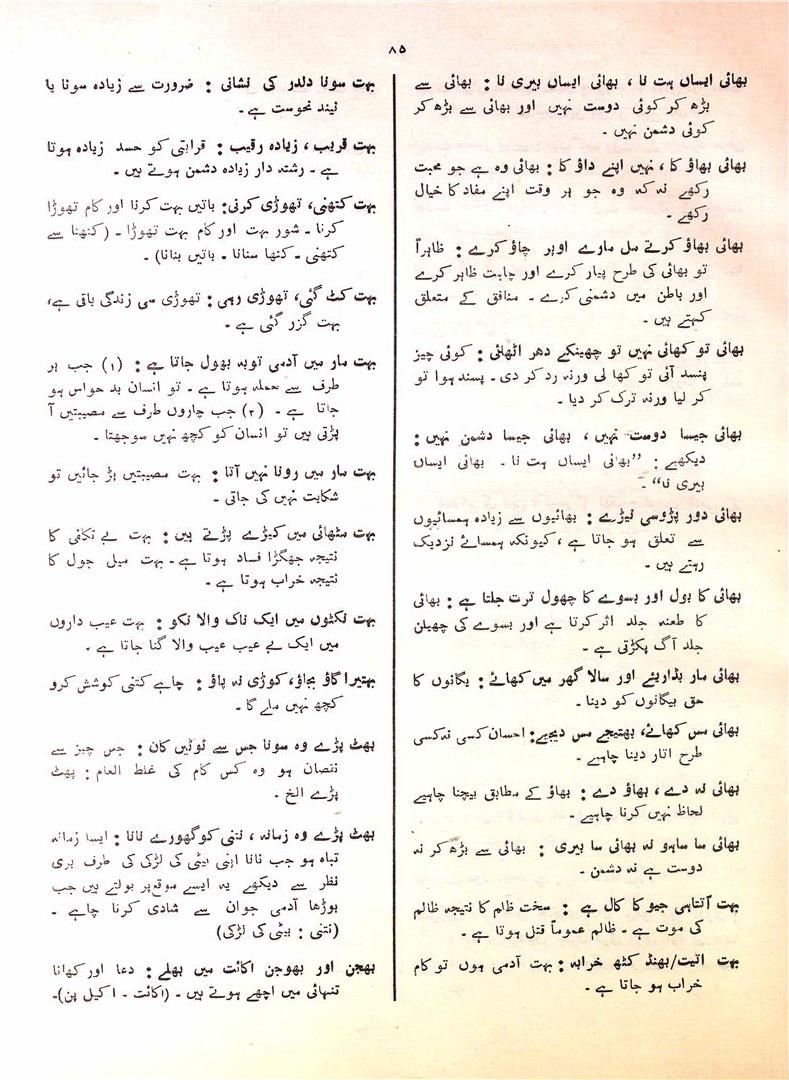 ۸۵
بھائی ایساں ہت نا ، بھائی ایساں بیری نا : بھائی سے
بڑھ کر کوئی دوست نہیں اور بھائی سے بڑھ کر
کوئی دشمن نہیں ۔
بھائی بھاؤ کا ، نہیں اپنے داؤ کا : بھائی وہ ہے جو محبت
رکھے نہ کہ وہ جو ہر وقت اپنے مفاد کا خیال
رکھے ۔
بھائی بھاؤ کرتے مل مارے اوپر چاؤ کرے : ظاہراً
تو بھائی کی طرح پیار کرے اور چاہت ظاہر کرے
اور باطن میں دشمنی کرے ۔ منافق کے متعلق
کہتے ہیں ۔
بھائی تو کھائی نہیں تو چھینکے دھر اٹھائی : کوئی چیز
پسند آئی تو کھا لی ورنہ رد کر دی ۔ پسند ہوا تو
کر لیا ورنہ ترک کر دیا ۔
بھائی جیسا دوست نہیں ، بھائی جیسا دشمن نہیں :
دیکھیے : ”بھائی ایساں ہت نا ۔ بھائی ایساں
بیری نا“ ۔
بھائی دور پڑوسی نیڑے : بھائیوں سے زیادہ ہمسائیوں
سے تعلق ہو جاتا ہے ، کیونکہ ہمسائے نزدیک
رہتے ہیں ۔
بھائی کا بول اور بسوے کا چھول ترت جلتا ہے : بھائی
کا طعنہ جلد اثر کرتا ہے اور بسوے کی چھیلن
جلد آگ پکڑتی ہے ۔
بھائی مار بڈاریئے اور سالا گھر میں کھائے : یگانوں کا
حق بیگانوں کو دینا ۔
بھائی مس کھائے، بھتیجے مس دیجیے : احسان کسی نہ کسی
طرح اتار دینا چاہیے ۔
بھائی نہ دے ، بھاؤ دے : بھاؤ کے مطابق بیچنا چاہیے
لحاظ نہیں کرنا چاہیے ۔
بھائی سا ساہو نہ بھائی سا بیری : بھائی سے بڑھ کر نہ
دوست ہے نہ دشمن ۔
بہت آتتاہی جیو کا کال ہے : سخت ظلم کا نتیجہ ظالم
کی موت ہے ۔ ظالم عموماً قتل ہوتا ہے ۔
بہت اتیت/بھنڈ کٹھ خرابہ : بہت آدمی ہوں تو کام
خراب ہو جاتا ہے ۔
بہت سونا دلدر کی نشانی : ضرورت سے زیادہ سونا یا
نیند نحوست ہے ۔
بہت قریب ، زیادہ رقیب : قرابتی کو حسد زیادہ ہوتا
ہے ۔ رشتہ دار زیادہ دشمن ہوتے ہیں ۔
بہت کتھنی، تھوڑی کرنی : باتیں بہت کرنا اور کام تھوڑا
کرنا ۔ شور بہت اور کام بہت تھوڑا ۔ (کتھنا سے
کتھنی ۔ کتھا سنانا ۔ باتیں بنانا) ۔
بہت کٹ گئی، تھوڑی رہی : تھوڑی سی زندگی باقی ہے،
بہت گزر گئی ہے ۔
بہت مار میں آدمی توبہ بھول جاتا ہے : (۱) جب ہر
طرف سے حملہ ہوتا ہے ۔ تو انسان بد حواس ہو
جاتا ہے ۔ (۲) جب چاروں طرف سے مصیبتیں آ
پڑتی ہیں تو انسان کو کچھ نہیں سوجھتا ۔
بہت مار میں رونا نہیں آتا : بہت مصیبتیں پڑ جائیں تو
شکایت نہیں کی جاتی ۔
بہت مٹھائی میں کیڑے پڑتے ہیں : بہت بے تکلفی کا
نتیجہ جھگڑا فساد ہوتا ہے ۔ بہت میل جول کا
نتیجہ خراب ہوتا ہے ۔
بہت نکٹوں میں ایک ناک والا نکو : بہت عیب داروں
میں ایک بے عیب عیب والا گنا جاتا ہے ۔
بہتیرا گاؤ بجاؤ، کوڑی نہ پاؤ : چاہے کتنی کوشش کرو
کچھ نہیں ملے گا ۔
بھٹ پڑے وہ سونا جس سے ٹوٹیں کان : جس چیز سے
نقصان ہو وہ کس کام کی غلط العام : پھٹ
پڑے الخ ۔
بھٹ پڑے وہ زمانہ ، نتنی کو گھورے نانا : ایسا زمانہ
تباہ ہو جب نانا اپنی بیٹی کی لڑکی کی طرف بری
نظر سے دیکھے یہ ایسے موقع پر بولتے ہیں جب
بوڑھا آدمی جوان سے شادی کرنا چاہے ۔
(نتنی : بیٹی کی لڑکی)
بھجن اور بھوجن اکانت میں بھلے : دعا اور کھانا
تنہائی میں اچھے ہوتے ہیں ۔ (اکانت ۔ اکیل پن)۔